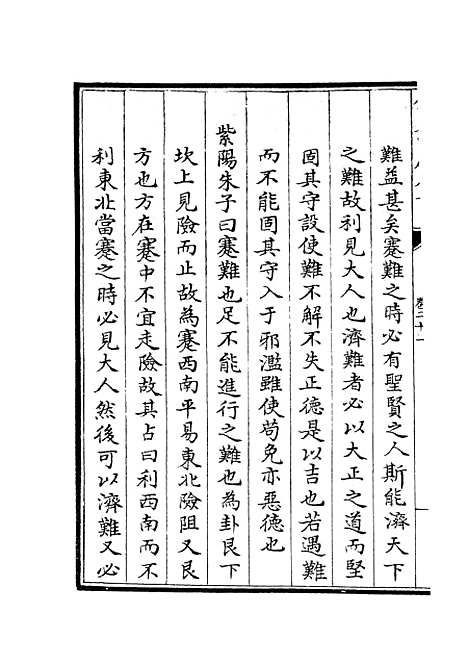 卷二十一
難益甚矣蹇難之時必有聖賢之人斯能濟天下
之難故利見大人也濟難者必以大正之道而堅
固其守設使難不解不失正德是以吉也若遇難
而不能固其守入于邪濫雖使苟免亦惡德也
紫陽朱子曰蹇難也足不能進行之難也為卦艮下
坎上見險而止故為蹇西南平易東北險阻又艮
方也方在蹇中不宜走險故其占曰利西南而不
利東北當蹇之時必見大人然後可以濟難又必